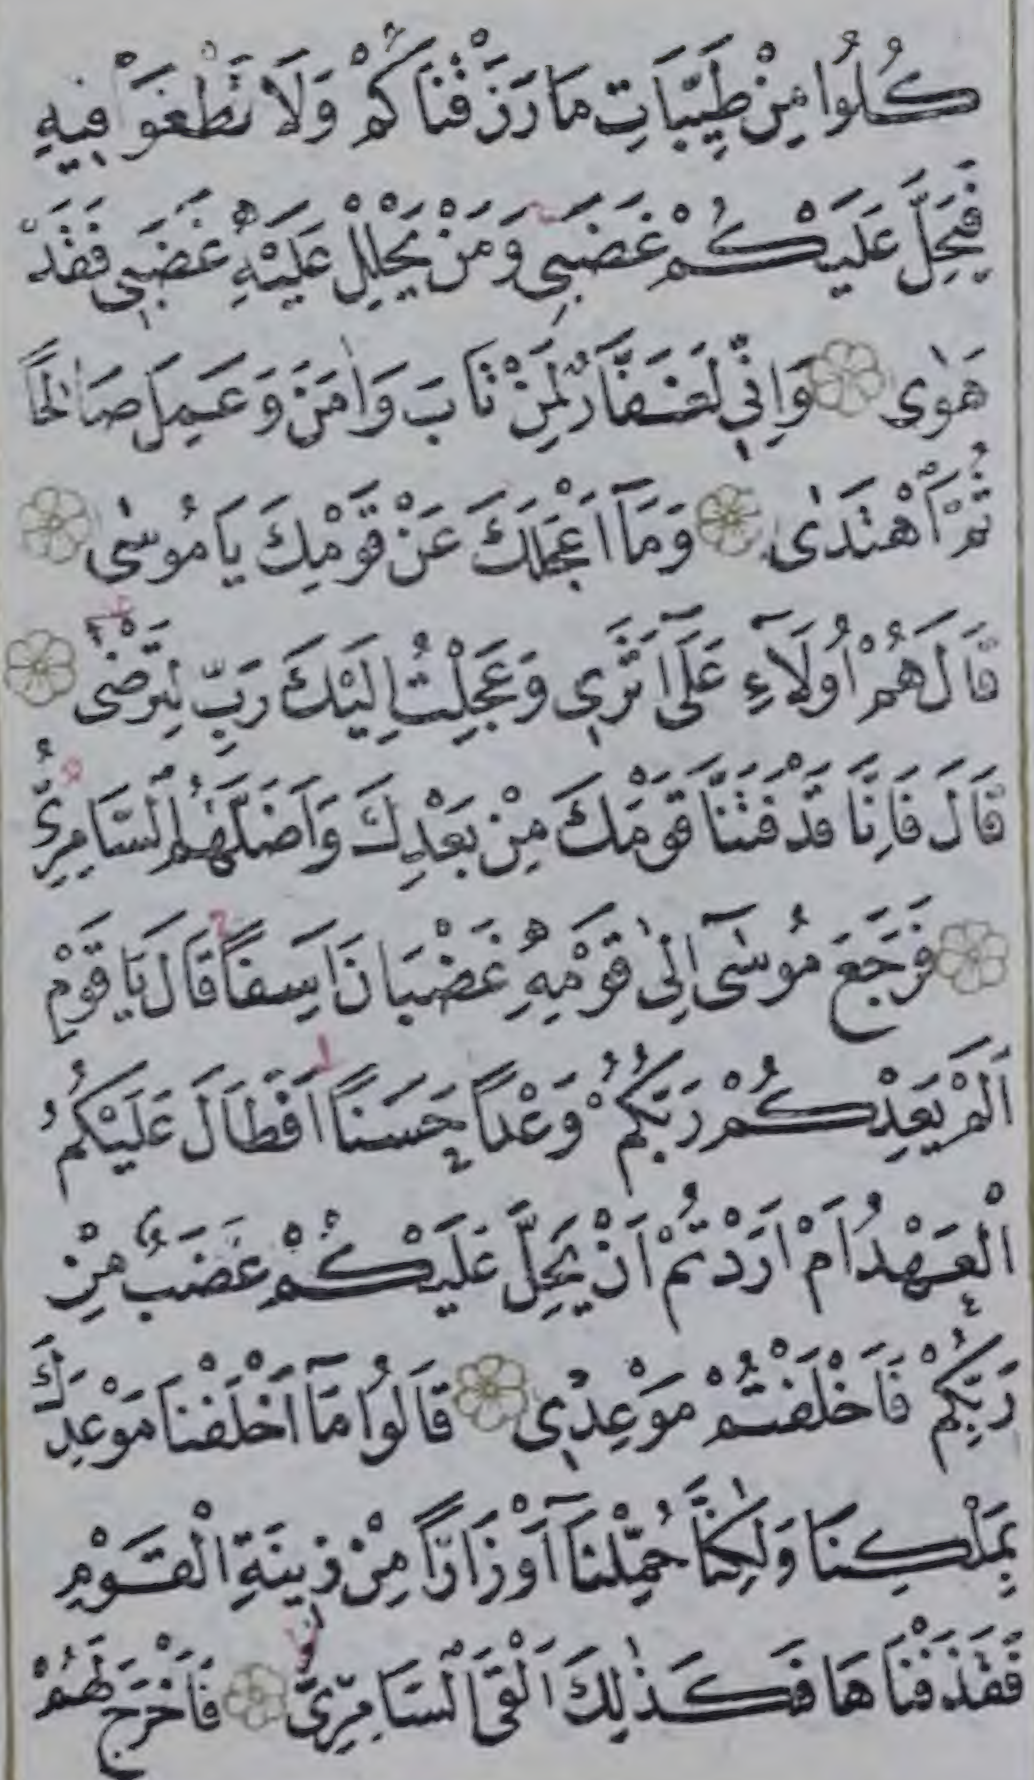 كُلُوا مِنْ طَيِّبَاتِ مَا رَزَقْنَاكُمْ وَلَا تَطْغَوْا فِيهِ
فَيَحِلَّ عَلَيْكُمْ غَضَبِي وَمَنْ يَحْلِلْ عَلَيْهِ غَضَبِي فَقَدْ
هَوٰى وَاِنِّي لَغَفَّارٌ لِمَنْ تَابَ وَاٰمَنَ وَعَمِلَ صَالِحًا
ثُمَّ اهْتَدٰى وَمَٓا اَعْجَلَكَ عَنْ قَوْمِكَ يَا مُوسٰى
قَالَ هُمْ اُولَٓاءِ عَلٰٓى اَثَرِي وَعَجِلْتُ اِلَيْكَ رَبِّ لِتَرْضٰى
قَالَ فَاِنَّا قَدْ فَتَنَّا قَوْمَكَ مِنْ بَعْدِكَ وَاَضَلَّهُمُ السَّامِرِيُّ
فَرَجَعَ مُوسٰٓى اِلٰى قَوْمِهِ غَضْبَانَ اَسِفًا قَالَ يَا قَوْمِ
اَلَمْ يَعِدْكُمْ رَبُّكُمْ وَعْدًا حَسَنًا اَفَطَالَ عَلَيْكُمُ
الْعَهْدُ اَمْ اَرَدْتُمْ اَنْ يَحِلَّ عَلَيْكُمْ غَضَبٌ مِنْ
رَبِّكُمْ فَاَخْلَفْتُمْ مَوْعِدِي قَالُوا مَٓا اَخْلَفْنَا مَوْعِدَكَ
بِمَلْكِنَا وَلٰكِنَّا حُمِّلْنَٓا اَوْزَارًا مِنْ زِينَةِ الْقَوْمِ
فَقَذَفْنَاهَا فَكَذٰلِكَ اَلْقَى السَّامِرِيُّ فَاَخْرَجَ لَهُمْ